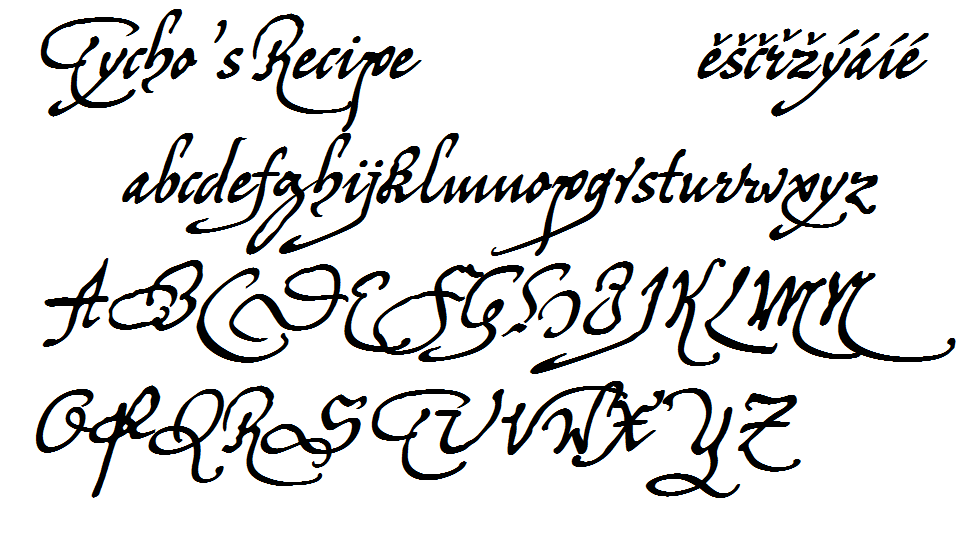 Tycho's Recipe ěščřžýáíé
abcdefghijklmnopqrstuvwxyz
ABCDEFGHIJKLMN
OPQRSTUVWXYZ